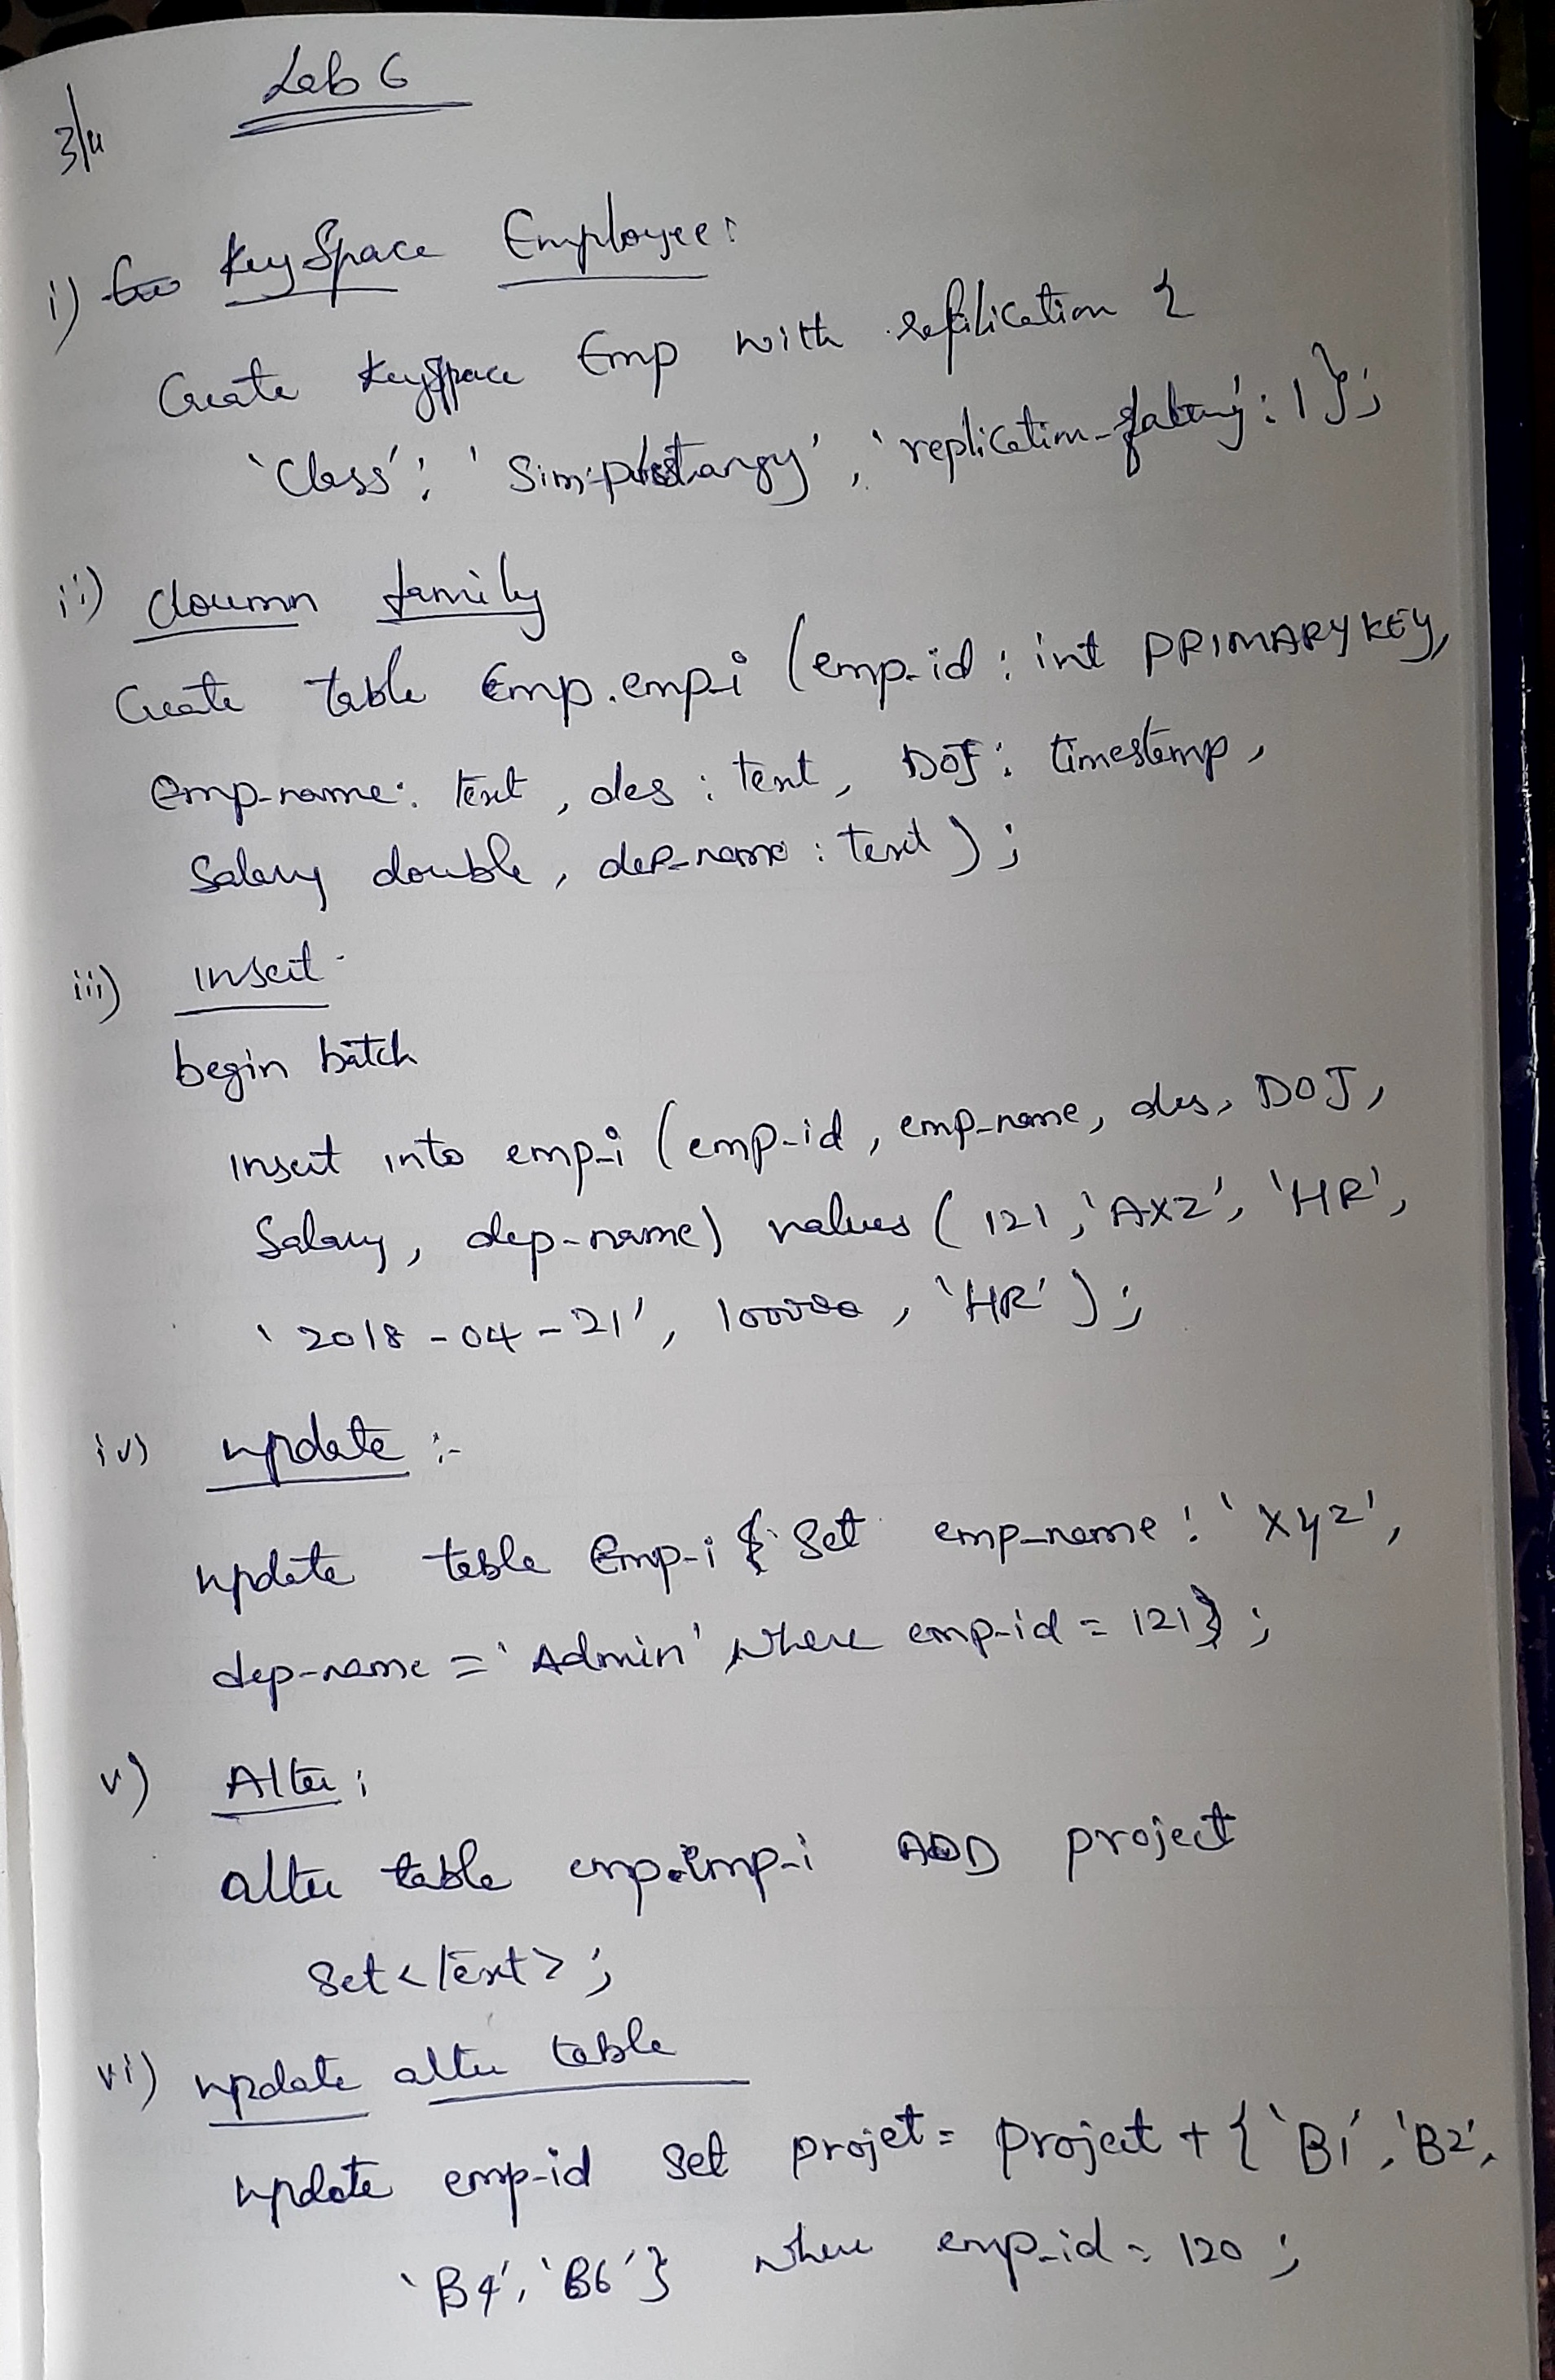 Lab 6
3/4
i) Key Space Employee:
Create keyspace Emp with replication {
'Class': 'Simplestrangy', 'replication-fatory': 1};
ii) cloumn family
Create table Emp.emp-i (emp-id : int PRIMARY KEY,
emp-name: text, des : text, DOJ : timestamp,
Salary double, dep-name : text);
iii) insert
begin batch
insert into emp-i (emp-id, emp-name, des, DOJ,
Salary, dep-name) values (121, 'AXZ', 'HR',
'2018-04-21', 100000, 'HR');
iv) update :-
update table Emp-i { Set emp-name : 'Xyz',
dep-name = 'Admin' where emp-id = 121};
v) Alter :
alter table emp.Emp-i ADD project
Set<text>;
vi) update alter table
update emp-id Set projet = project + {'B1', 'B2',
'B4', 'B6'} where emp-id = 120;